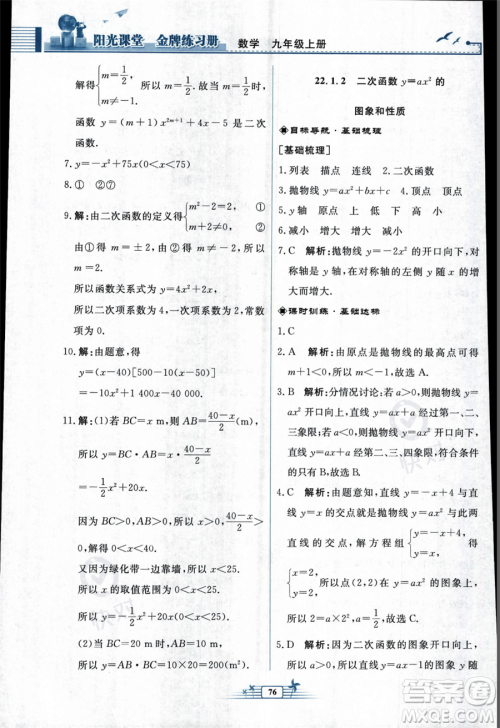 阳光课堂 金牌练习册 数学 九年级上册
解得{m≠-1/2,
m=1/2.
所以当 m=1/2 时,
函数 y=x^{2m+1}-4x-5 是一次函数.
7. y=-x²+75x(0<x<75)
8. ①②④
9. 解:由二次函数的定义得{m²-2=2,①
m+2≠0.②
由①得 m=±2,由②得 m≠-2,所以
m=2.
所以函数关系式为 y=4x²+x-1.
所以二次项系数为 4,一次项系数为 1,
常数项为-1.
10. 解:由题意,得
y=(x-40)[500-10(x-50)]
=-10x²+1 400x-40 000.
11. 解:(1)若 BC=x m,
则 AB=(40-x)/2(m),
所以 y=x(40-x)/2=-1/2x²+20x.
因为 BC>0,AB>0,所以 x>0,(40-x)/2>0,
所以 0<x<40.
因为墙长为 25 m,所以 x≤25,
所以 x 的取值范围为 0<x≤25.
所以 y=-1/2x²+20x(0<x≤25).
(2)当 BC=20 m 时,
22.1.2 二次函数 y=ax² 的
图象和性质
目标导航·基础梳理
[基础梳理]
1. 列表 描点 连线 2. 二次函数
3. 抛物线 y=ax²+bx+c 4. 顶点 顶点
5. y 轴 原点 上 低 下 高
6. 减小 增大 增大 减小
7. C 解析:抛物线 y=-2x² 的开口向下,对
称轴是 y 轴,在对称轴的左侧 y 随 x 的
增大而增大.
课时训练·基础达标
1. C
2. A 解析:由原点是抛物线的最高点可知
m+1<0,即 m<-1.
3. B 解析:分情况讨论:若 a>0,抛物线的
开口向上,直线在第一、三象限;若 a<0,
抛物线的开口向下,直线在第二、四象限,
所以选 B.
4. C 解析:由题意知,直线 x+y=4 与 y=
x 的交点就是抛物线 y=ax² 与两条
直线的交点,解方程组{y=-x+4,
y=x,得
{x=2,
y=2.所以点(2,2)在 y=ax² 的图象上,
所以 a=1/2.
5. D 解析:由二次函数的图象开口向上可
76